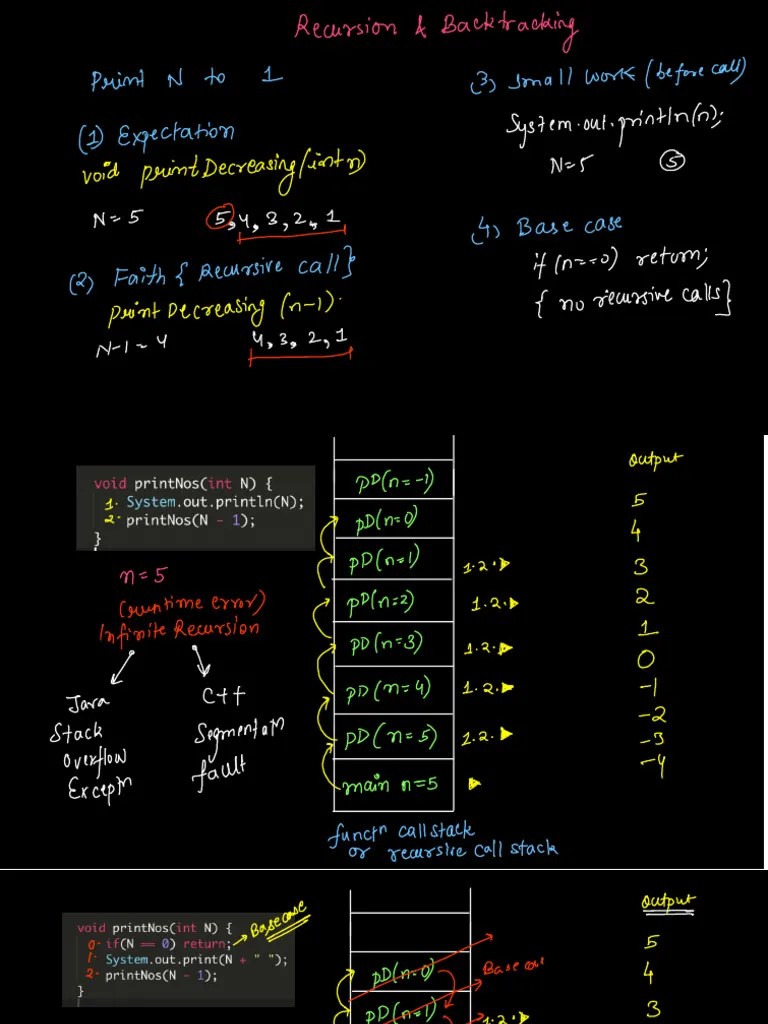 Recursion & Backtracking
Print N to 1
(1) Expectation
void printDecreasing(int n)
N=5 5,4,3,2,1
(2) Faith { Recursive call}
print Decreasing (n-1).
N-1=4 4,3,2,1
(3) small work (before call)
System.out.println(n);
N=5 5
(4) Base case
if (n==0) return;
{ no recursive calls}
void printNos(int N) {
1. System.out.println(N);
2. printNos(N - 1);
}
n=5
(runtime error)
Infinite Recursion
Java
Stack
Overflow
Exceptn
C++
Segmentatn
fault
pD(n=-1)
pD(n=0)
pD(n=1) 1.2.
pD(n=2) 1.2.
pD(n=3) 1.2.
pD(n=4) 1.2.
pD(n=5) 1.2.
main n=5
functn call stack
or recursive call stack
output
5
4
3
2
1
0
-1
-2
-3
-4
void printNos(int N) {
0. if(N == 0) return; Base case
1. System.out.print(N + " ");
2. printNos(N - 1);
}
pD(n=0) Base case
pD(n=1) 1.2.
output
5
4
3